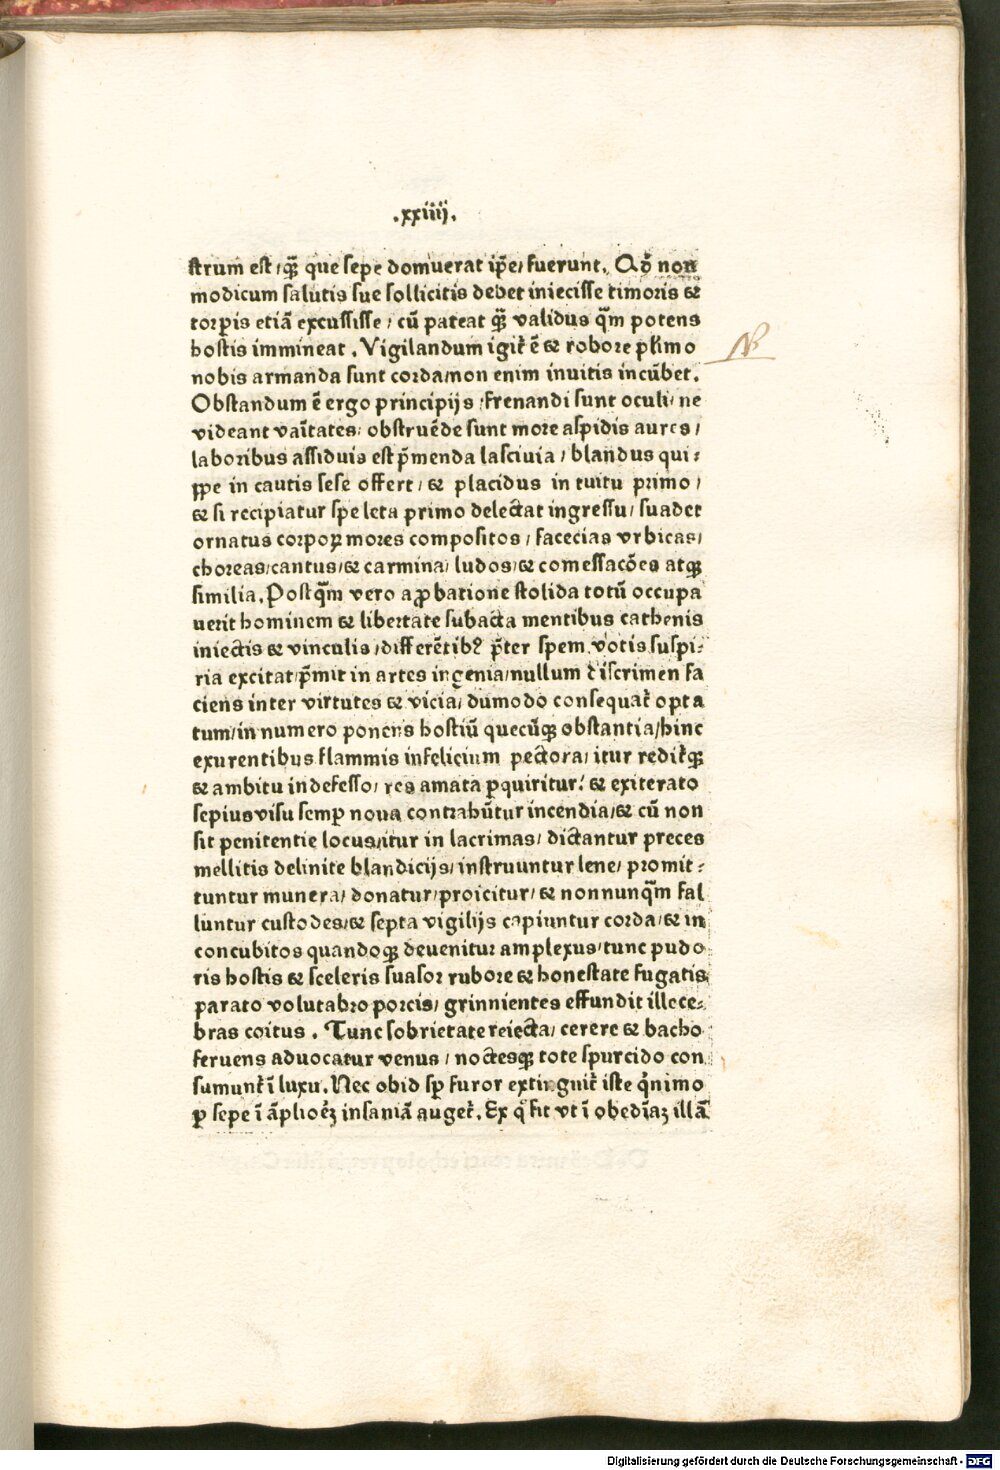 .xxiiij.
strum est/qꝫ̄ que sepe domuerat ip̄e/fuerunt. Qđ non
modicum salutis sue sollicitis debet iniecisse timoris ⁊
torpis etiā excussisse/cū pateat qꝫ̄ validus q̄m potens
hostis immineat. Vigilandum igit᷑ ē ⁊ robore plꝛimo
nobis armanda sunt corda/non enim inuitis incūbet.
Obstandum ē ergo principijs/frenandi sunt oculi/ne
videant vaītates/obstruēde sunt more aspidis aures/
laboribus assiduis est p̄menda lasciuia/blandus qui⸗
ppe in cautis sese offert/⁊ placidus in tuitu primo/
⁊ si recipiatur spe leta primo delectat ingressu/suadet
ornatus corpoꝝ mores compositos/facecias vrbicas/
choreas/cantus/⁊ carmina/ludos/⁊ comessacōes atqꝫ
similia. Postq̄m vero aꝓbatione stolida totū occupa
uerit hominem ⁊ libertate subacta mentibus cathenis
iniectis ⁊ vinculis/differētibꝰ p̄ter spem votis suspi⸗
ria excitat/p̄mit in artes ingenia/nullum discrimen fa
ciens inter virtutes ⁊ vicia/dumodo consequat᷑ opta
tum/in numero ponens hostiū quecūqꝫ obstantia/hinc
exurentibus flammis infelicium pectora/itur redit᷑qꝫ
⁊ ambitu indefesso/res amata ꝑquiritur/⁊ exiterato
sepius visu semꝑ noua contrahūtur incendia/⁊ cū non
sit penitentie locus/itur in lacrimas/dictantur preces
mellitis delinite blandicijs/instruuntur lene/promit⸗
tuntur munera/donatur/proicitur/⁊ nonnunq̄m fal
luntur custodes/⁊ septa vigilijs capiuntur corda/⁊ in
concubitos quandoqꝫ deuenitur amplexus/tunc pudo
ris hostis ⁊ sceleris suasor rubore ⁊ honestate fugatis
parato volutabro porcis/grinnientes effundit illece⸗
bras coitus. Tunc sobrietate reiecta/cerere ⁊ bacho
feruens aduocatur venus/noctesqꝫ tote spurcido con
sumunt᷑ ī luxu. Nec obid sꝑ furor extinguit᷑ iste qͥnimo
ꝑ sepe ī āplioꝛēꝫ insaniā auget᷑. Ex qͦ fit vt ī obedīaꝫ illā
Digitalisierung gefördert durch die Deutsche Forschungsgemeinschaft - DFG